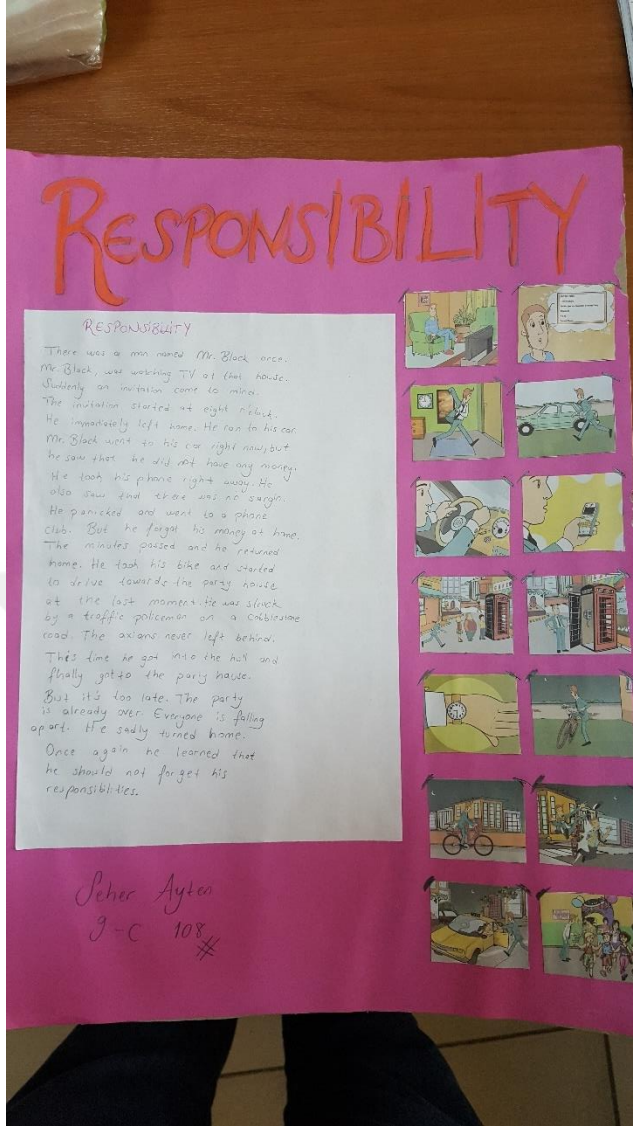 RESPONSIBILITY
RESPONSIBILITY
There was a man named Mr. Black once.
Mr. Black, was watching TV at that house.
Suddenly an invitation come to mind.
The invitation started at eight o'clock.
He immediately left home. He ran to his car.
Mr. Black went to his car right now, but
he saw that he did not have any money.
He took his phone right away. He
also saw that there was no sargin.
He panicked and went to a phone
club. But he forgot his money at home.
The minutes passed and he returned
home. He took his bike and started
to drive towards the party house
at the last moment. He was struck
by a traffic policeman on a cobblestone
road. The axians never left behind.
This time he got into the and
finally got to the party house.
But it's too late. The party
is already over. Everyone is falling
apart. He sadly turned home.
Once again he learned that
he should not forget his
responsiblities.
Seher Ayten
9-C 108